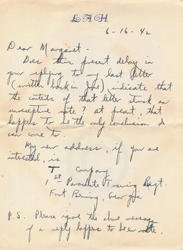 L A H
6-16-42
Dear Margaret -
Does this present delay in
your replying to my last letter
(written back in Jan) indicate that
the contents of that letter struck an
unreceptive note? At present, that
happens to be the only conclusion I
can come to.
My new address, if you are
interested, is
T Company
1st Parachute Training Regt.
Fort Benning, Georgia
P.S. Please ignore the above message
if a reply happens to be en route.